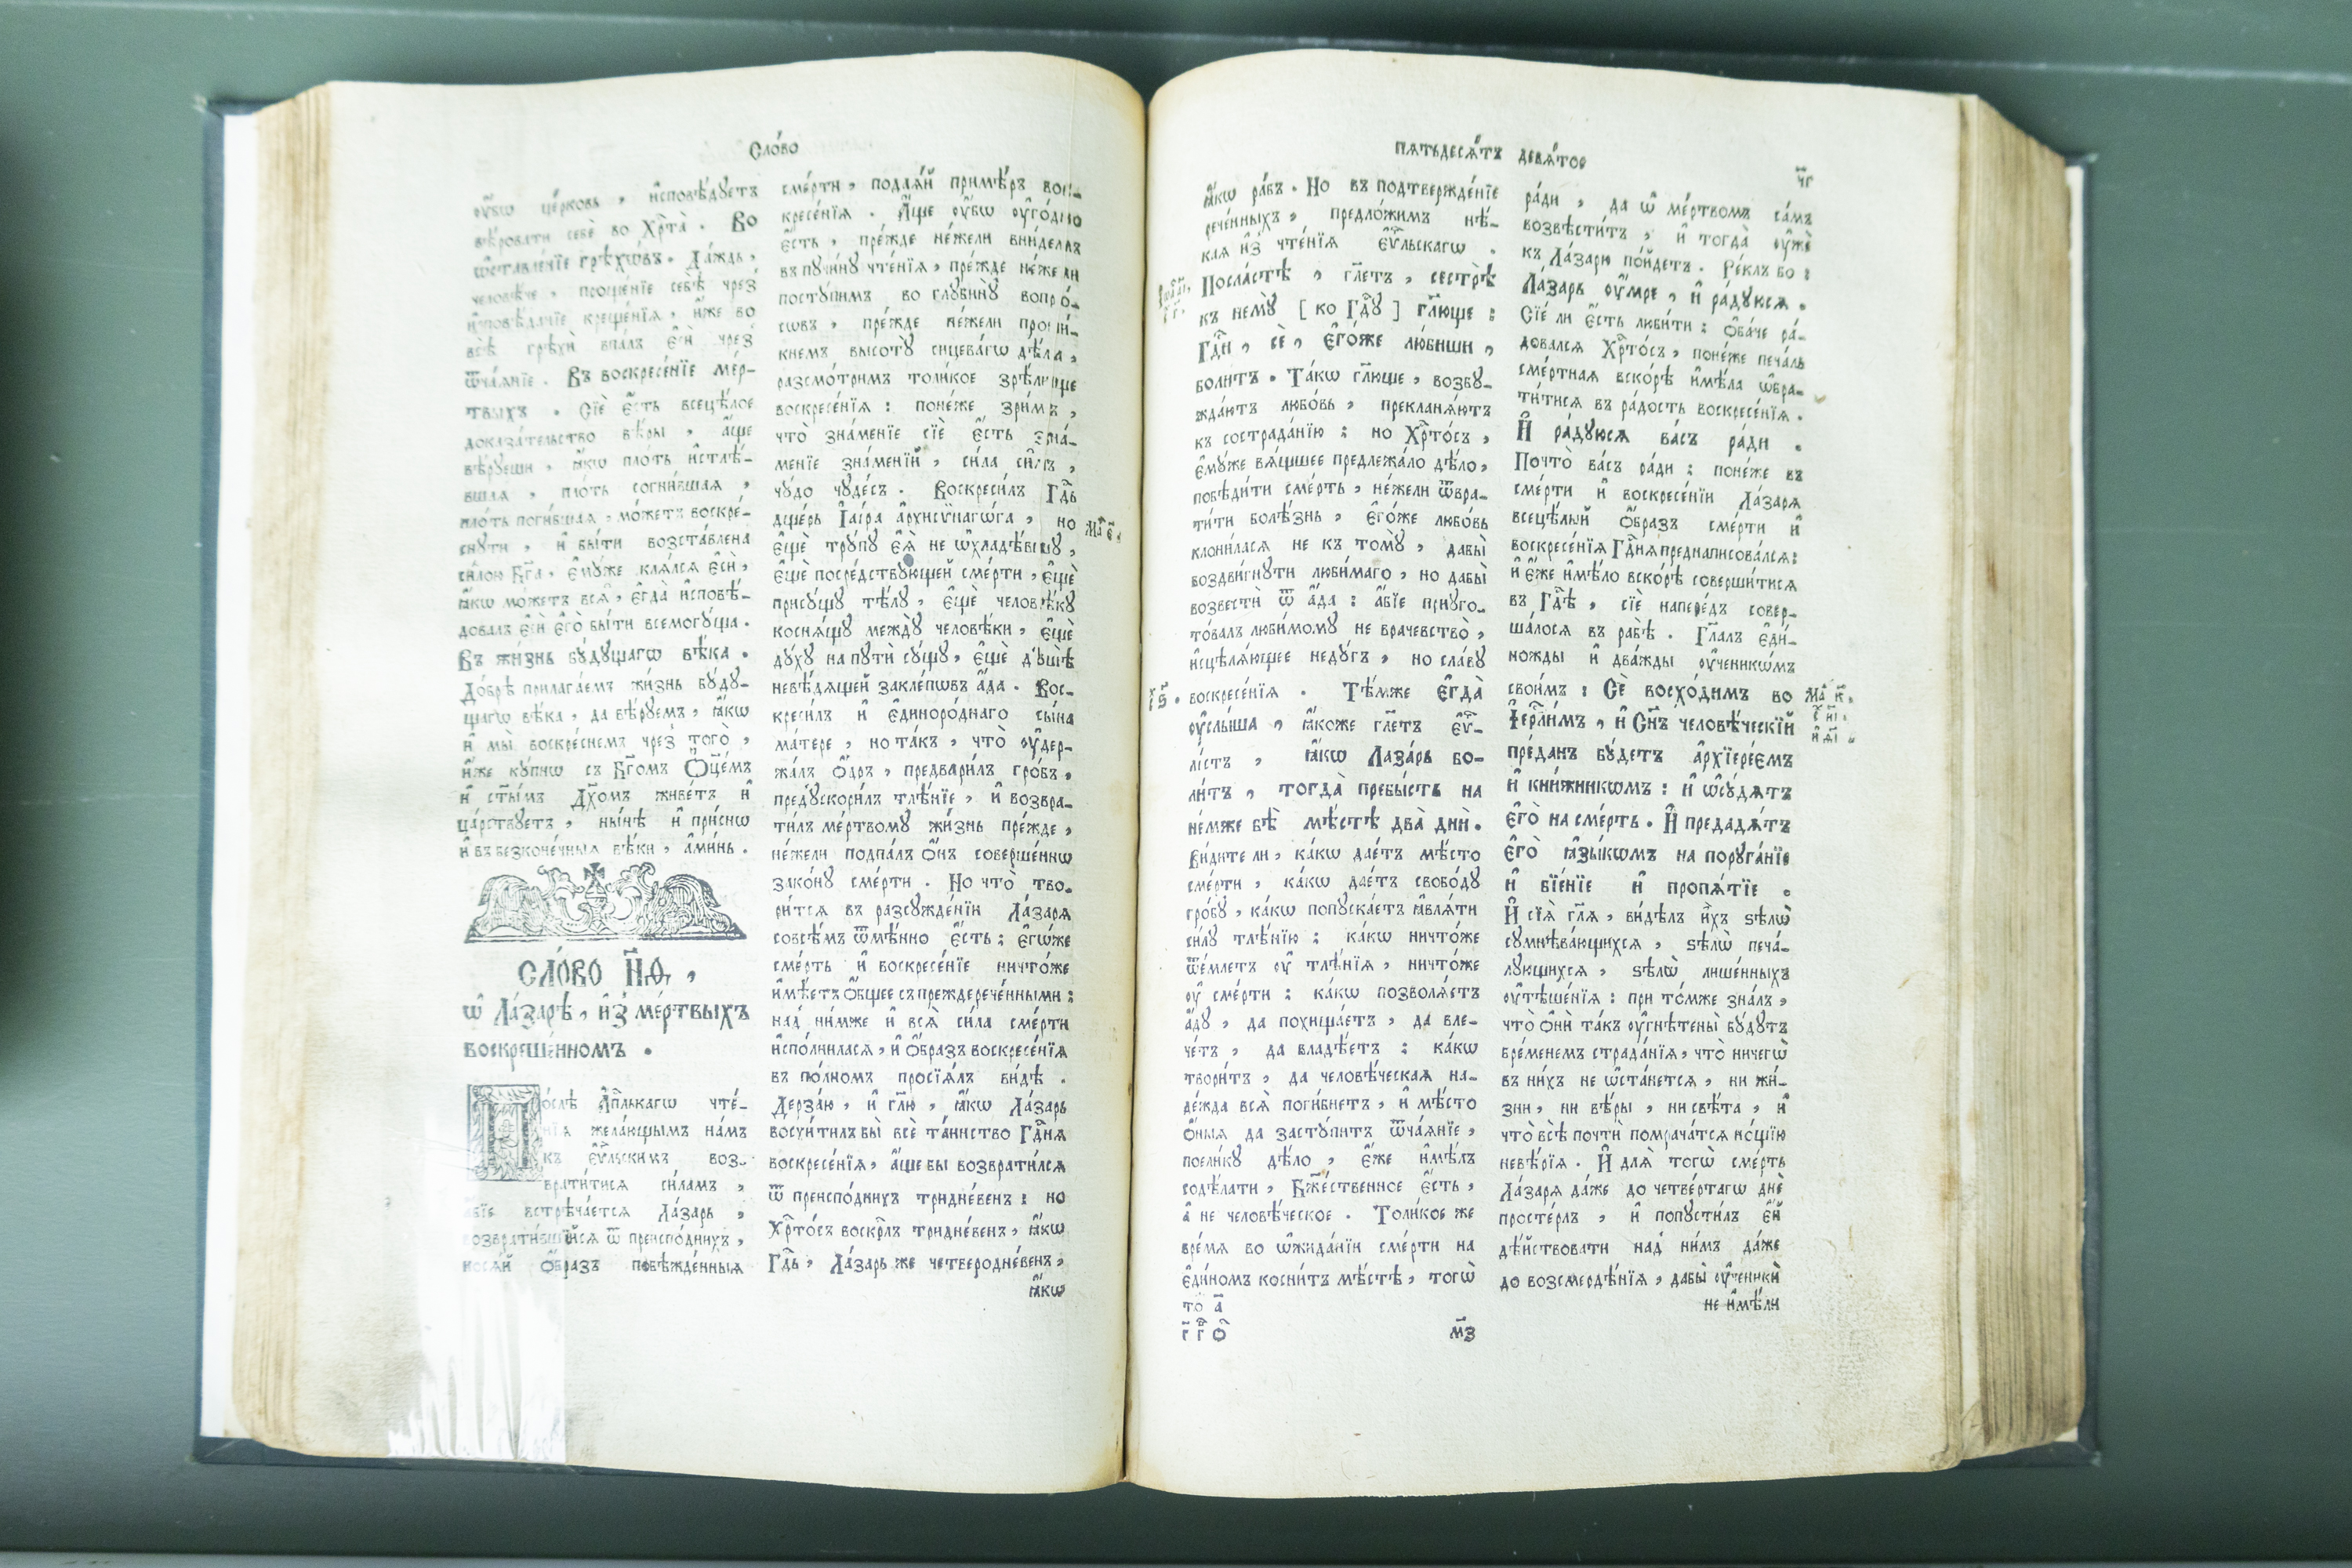 Сло́во
ᲂу҆́бѡ це́рковь, и҆сповѣ́дꙋетъ
вѣ́ровати себѐ во Хрⷭ҇та̀. Во
ѡ҆ставле́нїе грѣхѡ́въ. Да́ждь,
человѣ́че, проще́нїе себѣ̀ чрез̾
и҆сповѣ́данїе креще́нїѧ, и҆́же во
всѣ̀ грѣхѝ впа́лъ є҆сѝ чрез̾
ѿча́ѧнїе. Въ воскресе́нїе ме́р-
твыхъ. Сїѐ є҆́сть всецѣ́лое
доказа́тельство вѣ́ры, а҆́ще
вѣ́рꙋеши, ꙗ҆́кѡ пло́ть и҆стлѣ́-
вшаѧ, пло́ть согни́вшаѧ,
пло́ть поги́бшаѧ, мо́жетъ воскре́-
снꙋти, и҆ бы́ти возста́влена
си́лою Бг҃а. Є҆мꙋ́же клѧ́лсѧ є҆сѝ,
ꙗ҆́кѡ мо́жетъ всѧ̑, є҆гда̀ и҆сповѣ́-
далъ є҆сѝ є҆го̀ бы́ти всемогꙋ́ща.
Въ жи́знь бꙋ́дꙋщагѡ вѣ́ка.
До́брѣ прилага́емъ жи́знь бꙋ́дꙋ-
щагѡ вѣ́ка, да вѣ́рꙋемъ, ꙗ҆́кѡ
и҆ мы̀ воскре́снемъ чрез̾ того̀,
и҆́же кꙋ́пнѡ съ Бг҃омъ Ѻ҆ц҃е́мъ
и҆ ст҃ы́мъ Дх҃омъ живе́тъ и҆
ца́рствꙋетъ, ны́нѣ и҆ при́снѡ
и҆ въ безконе́чныѧ вѣ́ки, а҆ми́нь.
СЛО́ВО Н҃Ѳ,
ѡ҆ Ла́зарѣ, и҆з̾ ме́ртвыхъ
воскреше́нномъ.
По́слѣ А҆пⷭ҇льскагѡ чте́-
нїѧ жела́ющымъ на́мъ
къ є҆ѵⷢ҇льскимъ воз-
врати́тисѧ си́ламъ,
а҆́бїе встрѣча́етсѧ Ла́зарь,
возврати́вшїйсѧ ѿ преиспо́дних,
носѧ́й ѻ҆́бразъ побѣжде́нныѧ
сме́рти, пода́ѧй примѣ́ръ вос-
кресе́нїѧ. А҆́ще ᲂу҆́бѡ ᲂу҆го́дно
є҆́сть, пре́жде не́жели вни́демъ
въ пꙋчи́нꙋ чте́нїѧ, пре́жде не́жели
постꙋ́пимъ во глꙋбинꙋ̀ вопро́-
сѡвъ, пре́жде не́жели прони́-
кнемъ высотꙋ̀ сицева́гѡ дѣ́ла,
разсмо́тримъ толи́кое зрѣ́лище
воскресе́нїѧ: поне́же зри́мъ,
что̀ зна́менїе сїѐ є҆́сть зна́-
менїе зна́менїй, си́ла си́лъ,
чꙋ́до чꙋде́съ. Воскреси́лъ Гдⷭ҇ь
дще́рь І҆аі́ра а҆рхисѷнагѡ́га, но
є҆щѐ трꙋ́пꙋ є҆ѧ̀ не ѡ҆хладѣ́вшꙋ,
є҆щѐ посре́дствꙋющей сме́рти, є҆щѐ
присꙋ́щꙋ тѣ́лꙋ, є҆щѐ человѣ́кꙋ
коснѧ́щꙋ междꙋ̀ человѣ́ки, є҆щѐ
дꙋ́хꙋ на пꙋтѝ сꙋ́щꙋ, є҆щѐ дꙋшѣ̀
невѣ́дѧщей закле́пѡвъ а҆́да. Вос-
креси́лъ и҆ є҆диноро́днаго сы́на
ма́тере, но та́къ, что̀ ᲂу҆дер-
жа́лъ ѻ҆́дръ, предвари́лъ гро́бъ,
предꙋскори́лъ тлѣ́нїе, и҆ возвра-
ти́лъ ме́ртвомꙋ жи́знь пре́жде,
не́жели подпа́лъ ѻ҆́нъ соверше́ннѡ
зако́нꙋ сме́рти. Но что̀ тво-
ри́тсѧ въ разсꙋжде́нїи Ла́зарѧ
совсѣ́мъ ѿмѣ́нно є҆́сть: є҆гѡ́же
сме́рть и҆ воскресе́нїе ничто́же
и҆мѣ́етъ ѻ҆́бщее съ преждерече́нными:
над̾ ни́мже и҆ всѧ̀ си́ла сме́рти
и҆спо́лниласѧ, и҆ ѻ҆́бразъ воскресе́нїѧ
въ по́лномъ просїѧ́лъ ви́дѣ.
Дерза́ю, и҆ гл҃ю, ꙗ҆́кѡ Ла́зарь
восхи́тилъ бы̀ всѐ та́инство Гдⷭ҇нѧ
воскресе́нїѧ, а҆́ще бы возврати́лсѧ
ѿ преиспо́днихъ тридне́венъ: но
Хрⷭ҇то́съ воскр҃лъ тридне́венъ, ꙗ҆́кѡ
Гдⷭ҇ь, Ла́зарь же четверодне́венъ,
ꙗ҆́кѡ
пѧтьдесѧ́тъ девѧ́тое
ч҃г
ꙗ҆́кѡ ра́бъ. Но въ подтвержде́нїе
рече́нныхъ, предло́жимъ нѣ́-
каѧ и҆з̾ чте́нїѧ є҆ѵⷢ҇льскагѡ.
Посла́стѣ, гл҃етъ, сестрѣ̀
къ немꙋ̀ [ ко Гдⷭ҇ꙋ ] гл҃юще:
Гдⷭ҇и, сѐ, є҆го́же лю́биши,
боли́тъ. Та́кѡ гл҃юще, возбꙋ-
жда́ютъ любо́вь, прекланѧ́ютъ
къ сострада́нїю: но Хрⷭ҇то́съ,
є҆мꙋ́же вѧ́щшее предлежа́ло дѣ́ло,
побѣди́ти сме́рть, не́жели ѿвра-
ти́ти болѣ́знь, є҆го́же любо́вь
клони́ласѧ не къ томꙋ̀, дабы̀
воздви́гнꙋти люби́маго, но дабы̀
возвестѝ ѿ а҆́да: а҆́бїе приꙋго-
то́валъ люби́момꙋ не врачевство̀,
и҆сцѣлѧ́ющее недꙋ́гъ, но сла́вꙋ
воскресе́нїѧ. Тѣ́мже є҆гда̀
ᲂу҆слы́ша, ꙗ҆́коже гл҃етъ є҆ѵⷢ҇-
лі́стъ, ꙗ҆́кѡ Ла́зарь бо-
ли́тъ, тогда̀ пребы́сть на
не́мже бѣ̀ мѣ́стѣ два̀ дни̑.
Ви́дите ли, ка́кѡ дае́тъ мѣ́сто
сме́рти, ка́кѡ дае́тъ свобо́дꙋ
гро́бꙋ, ка́кѡ попꙋска́етъ ꙗ҆влѧ́ти
си́лꙋ тлѣ́нїю: ка́кѡ ничто́же
ѿе́млетъ ᲂу҆ тлѣ́нїѧ, ничто́же
ᲂу҆ сме́рти: ка́кѡ позволѧ́етъ
а҆́дꙋ, да похища́етъ, да вле-
че́тъ, да владѣ́етъ: ка́кѡ
твори́тъ, да человѣ́ческаѧ на-
де́жда всѧ̀ поги́бнетъ, и҆ мѣ́сто
ѻ҆́ныѧ да застꙋ́питъ ѿча́ѧнїе,
пое́ликꙋ дѣ́ло, є҆́же и҆мѣ́лъ
содѣ́лати, Бж҃е́ственное є҆́сть,
а҆ не человѣ́ческое. Толи́кое же
вре́мѧ во ѡ҆жида́нїи сме́рти на
є҆ди́номъ косни́тъ мѣ́стѣ, тогѡ̀
то а҃
м҃з
ра́ди, да ѡ҆ ме́ртвомъ са́мъ
возвѣсти́тъ, и҆ тогда̀ ᲂу҆жѐ
къ Ла́зарю по́йдетъ. Ре́клъ бо:
Ла́зарь ᲂу҆́мре, и҆ ра́дꙋюсѧ.
Сїе́ ли є҆́сть люби́ти: ѻ҆ба́че ра́-
довалсѧ Хрⷭ҇то́съ, поне́же печа́ль
сме́ртнаѧ вско́рѣ и҆мѣ́ла ѡ҆бра-
ти́тисѧ въ ра́дость воскресе́нїѧ.
И҆ ра́дꙋюсѧ ва́съ ра́ди.
Почто̀ ва́съ ра́ди: поне́же въ
сме́рти и҆ воскресе́нїи Ла́зарѧ
всецѣ́лый ѻ҆́бразъ сме́рти и҆
воскресе́нїѧ Гдⷭ҇нѧ преднаписова́лсѧ:
и҆ є҆́же и҆мѣ́ло вско́рѣ соверши́тисѧ
въ Гдⷭ҇ѣ, сїѐ напере́дъ совер-
ша́лосѧ въ рабѣ̀. Гл҃алъ є҆ди́-
ножды и҆ два́жды ᲂу҆ченикѡ́мъ
свои́мъ: Сѐ восхо́димъ во
І҆ерⷭ҇ли́мъ, и҆ Сн҃ъ человѣ́ческїй
пре́данъ бꙋ́детъ а҆рхїере́ємъ
и҆ кни́жникѡмъ: и҆ ѡ҆сꙋ́дѧтъ
є҆го̀ на сме́рть. И҆ предадѧ́тъ
є҆го̀ ꙗ҆зы́кѡмъ на порꙋга́нїе
и҆ бїе́нїе и҆ пропѧ́тїе.
И҆ сїѧ̑ гл҃ѧ, ви́дѣлъ и҆̀хъ ѕѣлѡ̀
сꙋмнѣва́ющихсѧ, ѕѣлѡ̀ печа́-
лꙋющихсѧ, ѕѣлѡ̀ лише́нныхъ
ᲂу҆тѣше́нїѧ: при то́мже зна́лъ,
что̀ ѻ҆нѝ та́къ ᲂу҆гнѣтены̀ бꙋ́дꙋтъ
бре́менемъ страда́нїѧ, что̀ ничегѡ̀
въ ни́хъ не ѡ҆ста́нетсѧ, ни жи́-
зни, ни вѣ́ры, ни свѣ́та, и҆
что̀ всѣ̀ почтѝ помрача́тсѧ но́щїю
невѣ́рїѧ. И҆ длѧ̀ тогѡ̀ сме́рть
Ла́зарѧ да́же до четве́ртагѡ днѐ
просте́рлъ, и҆ попꙋсти́лъ є҆́й
дѣ́йствовати над̾ ни́мъ да́же
до возсмердѣ́нїѧ, дабы̀ ᲂу҆ченикѝ
не и҆мѣ́ли